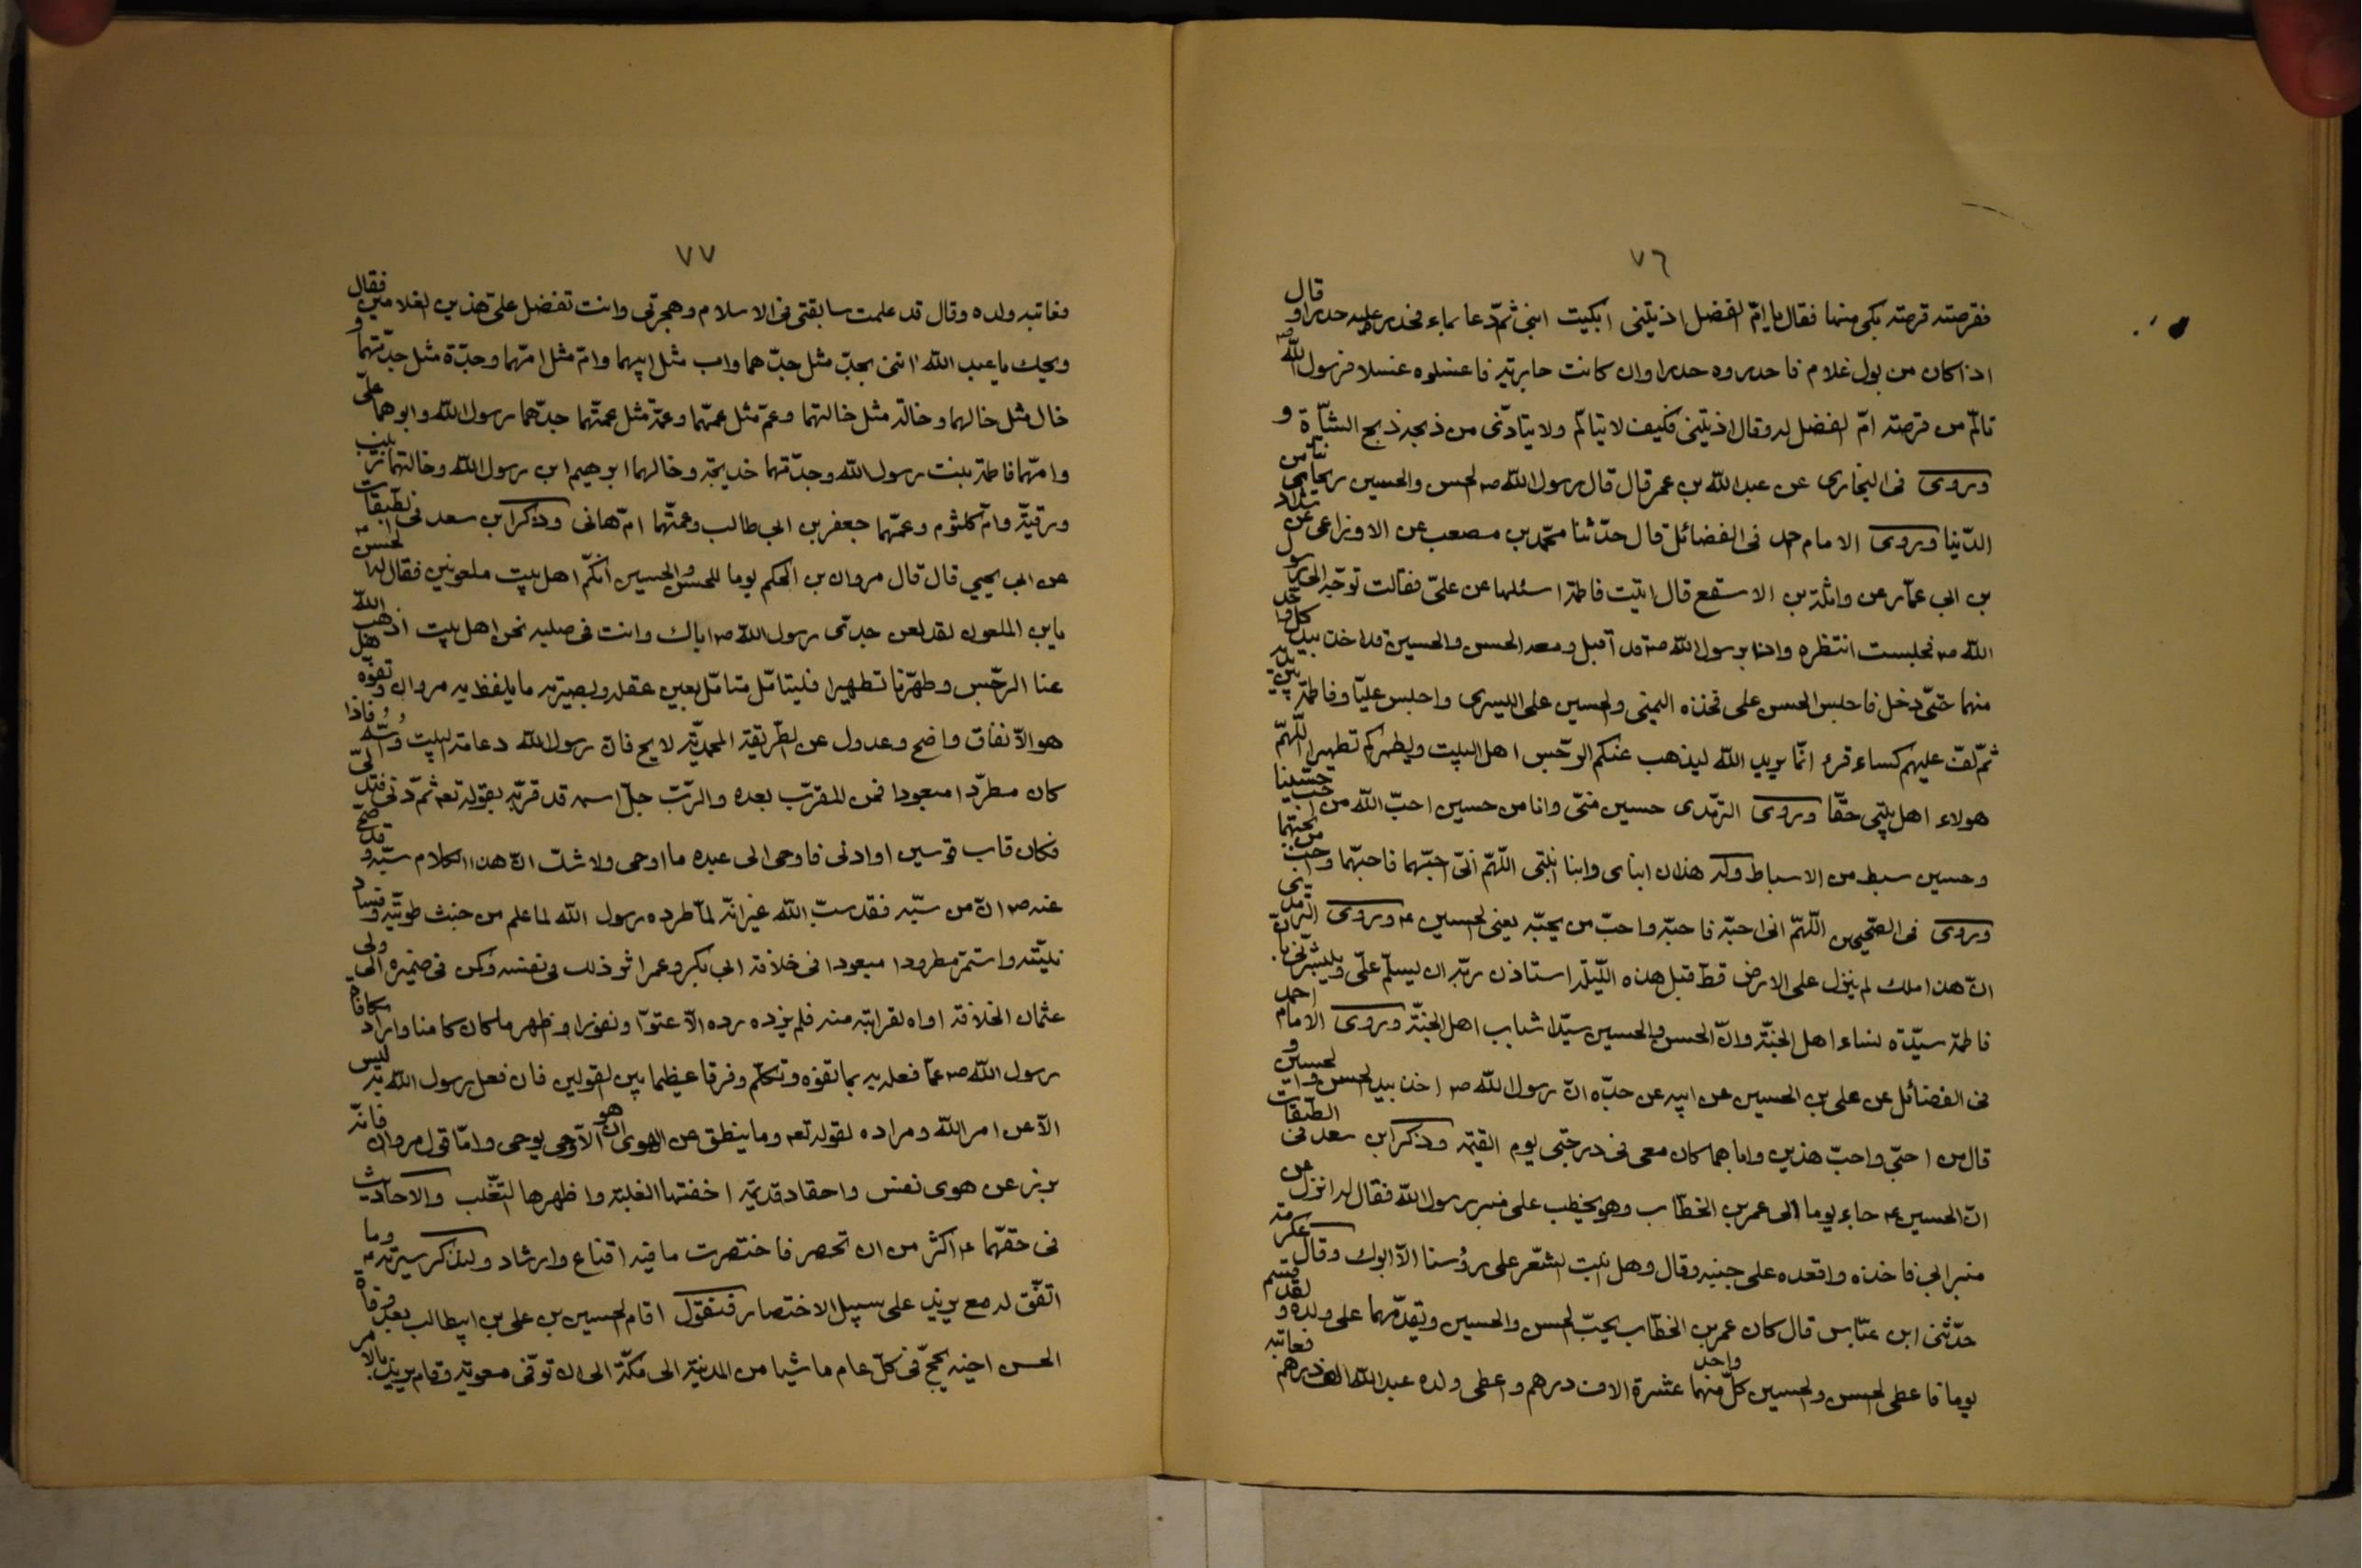 ٧٦
فقرصته قرصة بكى منها فقال يا امّ الفضل اذيتينى ابكيت ابنى ثمّ دعا بماء فحدره عليه حدرا وقال
اذا كان من بول غلام فاحدروه حدرا وان كانت جارية فاغسلوه غسلا فرسول الله صم
تألّم من قرصة امّ الفضل له وقال اذيتينى فكيف لا يتالّم ولا يتأذّى من ذبحه ذبح الشاة و
وروى فى البخارى عن عبد الله بن عمر قال قال رسول الله صم الحسن والحسين ريحانتاى من
الدّنيا وروى الامام احمد فى الفضائل قال حدّثنا محمّد بن مصعب عن الاوزاعى عن شداد
بن ابى عمّار عن واثلة بن الاسقع قال اتيت فاطمة اسئلها عن علىّ فقالت توجّه الى رسول
الله صم فجلست انتظره واذا برسول الله صم قد اقبل ومعه الحسن والحسين قد اخذ بيد كلّ واحد
منهما حتّى دخل فاجلس الحسن على فخذه اليمنى والحسين على اليسرى واجلس عليّا وفاطمة بين يديه
ثمّ لفّ عليهم كساء قرء انّما يريد الله ليذهب عنكم الرّجس اهل البيت ويطهركم تطهيرا اللّهمّ
هولاء اهل بيتى حقّا وروى الترمذى حسين منّى وانا من حسين احبّ الله من احبّ حسينا
وحسين سبط من الاسباط وله هذان ابناى وابنا ابنتى اللّهمّ انّى احبّهما فاحبّهما واحبّ من يحبّهما
وروى فى الصّحيحين اللّهمّ انى احبّه فاحبّه واحبّ من يحبّه يعنى الحسين ء وروى الترمذى
انّ هذا ملك لم ينزل على الارض قطّ قبل هذه اللّيلة استاذن ربّه ان يسلّم علىّ ويبشّرنى بانّ
فاطمة سيّدة نساء اهل الجنّة وانّ الحسن والحسين سيّدا شباب اهل الجنّة وروى الامام احمد
فى الفضائل عن على بن الحسين عن ابيه عن جدّه انّ رسول الله صم اخذ بيد الحسن والحسين و
قال من احبّنى واحبّ هذين واباهما كان معى فى درجتى يوم القيمة وذكر ابن سعد فى الطّبقات
انّ الحسين ء جاء يوما الى عمر بن الخطّاب وهو يخطب على منبر رسول الله فقال له انزل عن
منبر ابى فاخذه واقعده على جنبه وقال وهل انبت الشّعر على رؤسنا الّا ابوك وقال عكرمة
حدّثنى ابن عبّاس قال كان عمر بن الخطّاب يحبّ الحسن والحسين ويقدّمهما على ولده ولقد قسم
يوما فاعطى الحسن والحسين كلّ واحد منهما عشرة الاف درهم واعطى ولده عبد الله الف درهم فعاتبه
٧٧
فعاتبه ولده وقال قد علمت سابقتى فى الاسلام وهجرتى وانت تفضل علىّ هذين الغلامين فقال
ويحك يا عبد الله ائتنى بجدّ مثل جدّهما واب مثل ابيهما وامّ مثل امّهما وجدّة مثل جدّتهما و
خال مثل خالهما وخالة مثل خالتهما وعمّ مثل عمّهما وعمّة مثل عمّتهما جدّهما رسول الله وابوهما علىّ
وامّهما فاطمة بنت رسول الله وجدّتهما خديجة وخالهما ابرهيم ابن رسول الله وخالتهما زينب
ورقيّة وامّ كلثوم وعمّهما جعفر بن ابى طالب وعمّتهما امّ هانى وذكر ابن سعد فى الطبقات
عن ابى يحيي قال قال مروان بن الحكم يوما للحسن والحسين انّكم اهل بيت ملعونين فقال له الحسن
يابن الملعون لقد لعن جدّى رسول الله صم اباك وانت فى صلبه نحن اهل بيت اذهب الله
عنا الرّجس وطهّرنا تطهيرا فليتامّل متامّل بعين عقله وبصيرته ما يلفظ به مروان وتفوّه هل
هو الّا نفاق واضح وعدول عن الطّريقة المحمديّة لايح فانّ رسول الله دعامة البيت فاذا
كان مطرّدا مبعودا فمن المقرّب بعده والرّبّ جلّ اسمه قد قرّبه بقوله تعه ثمّ دنى فتدلّى
فكان قاب قوسين او ادنى فاوحى الى عبده ما اوحى ولا شكّ انّ هذا الكلام سبّه وقد صحّ
عنه صم انّ من سبّه فقد سبّ الله غير انّه لمّا طرده رسول الله لما علم من خبث طويّته وفساد
نيّته واستمرّ مطرودا مبعودا فى خلافة ابى بكر وعمر اثر ذلك فى نفسه وكمن فى ضميره الى ولى
عثمان الخلافة اواه لقرابته منه فلم يزده ردّه الّا عتوّا ونفورا وظهر ما كان كامنا واراد مكافاة
رسول الله صم عمّا فعله به بما تفوّه وتكلّم وفرقا عظيما بين القولين فان فعل رسول الله به ليس
الّا عن امر الله ومراده لقوله تعه وما ينطق عن الهوى ان هو الّا وحى يوحى وامّا قول مروان فانّه
برز عن هوى نفس واحقاد قديمة اخفتها الغلبة واظهرها التغّلب والاحاديث
فى حقّهما ء اكثر من ان تحصر فاختصرت ما فيه اقناع وارشاد ولنذكر سيرته ء وما
اتّفق له مع يزيد على سبيل الاختصار فنقول اقام الحسين بن على بن ابيطالب بعد وفاة
الحسن اخيه يحجّ فى كلّ عام ماشيا من المدينة الى مكّة الى ان توفّى معوية وقام يزيد بالامر